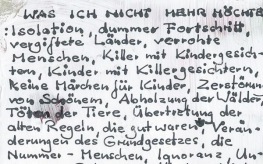 WAS ICH NICHT MEHR MÖCHTE
: Isolation, dummer Fortschritt,
vergiftete Länder, verrohte
Menschen, Killer mit Kindergesich-
tern, Kinder mit Killergesichtern,
keine Märchen für Kinder, Zerstörung
von Schönem, Abholzung der Wälder,
Töten der Tiere, Übertretung der
alten Regeln, die gut waren, Verän-
derungen des Grundgesetzes, die
Nummer-Menschen, Ignoranz, Un-